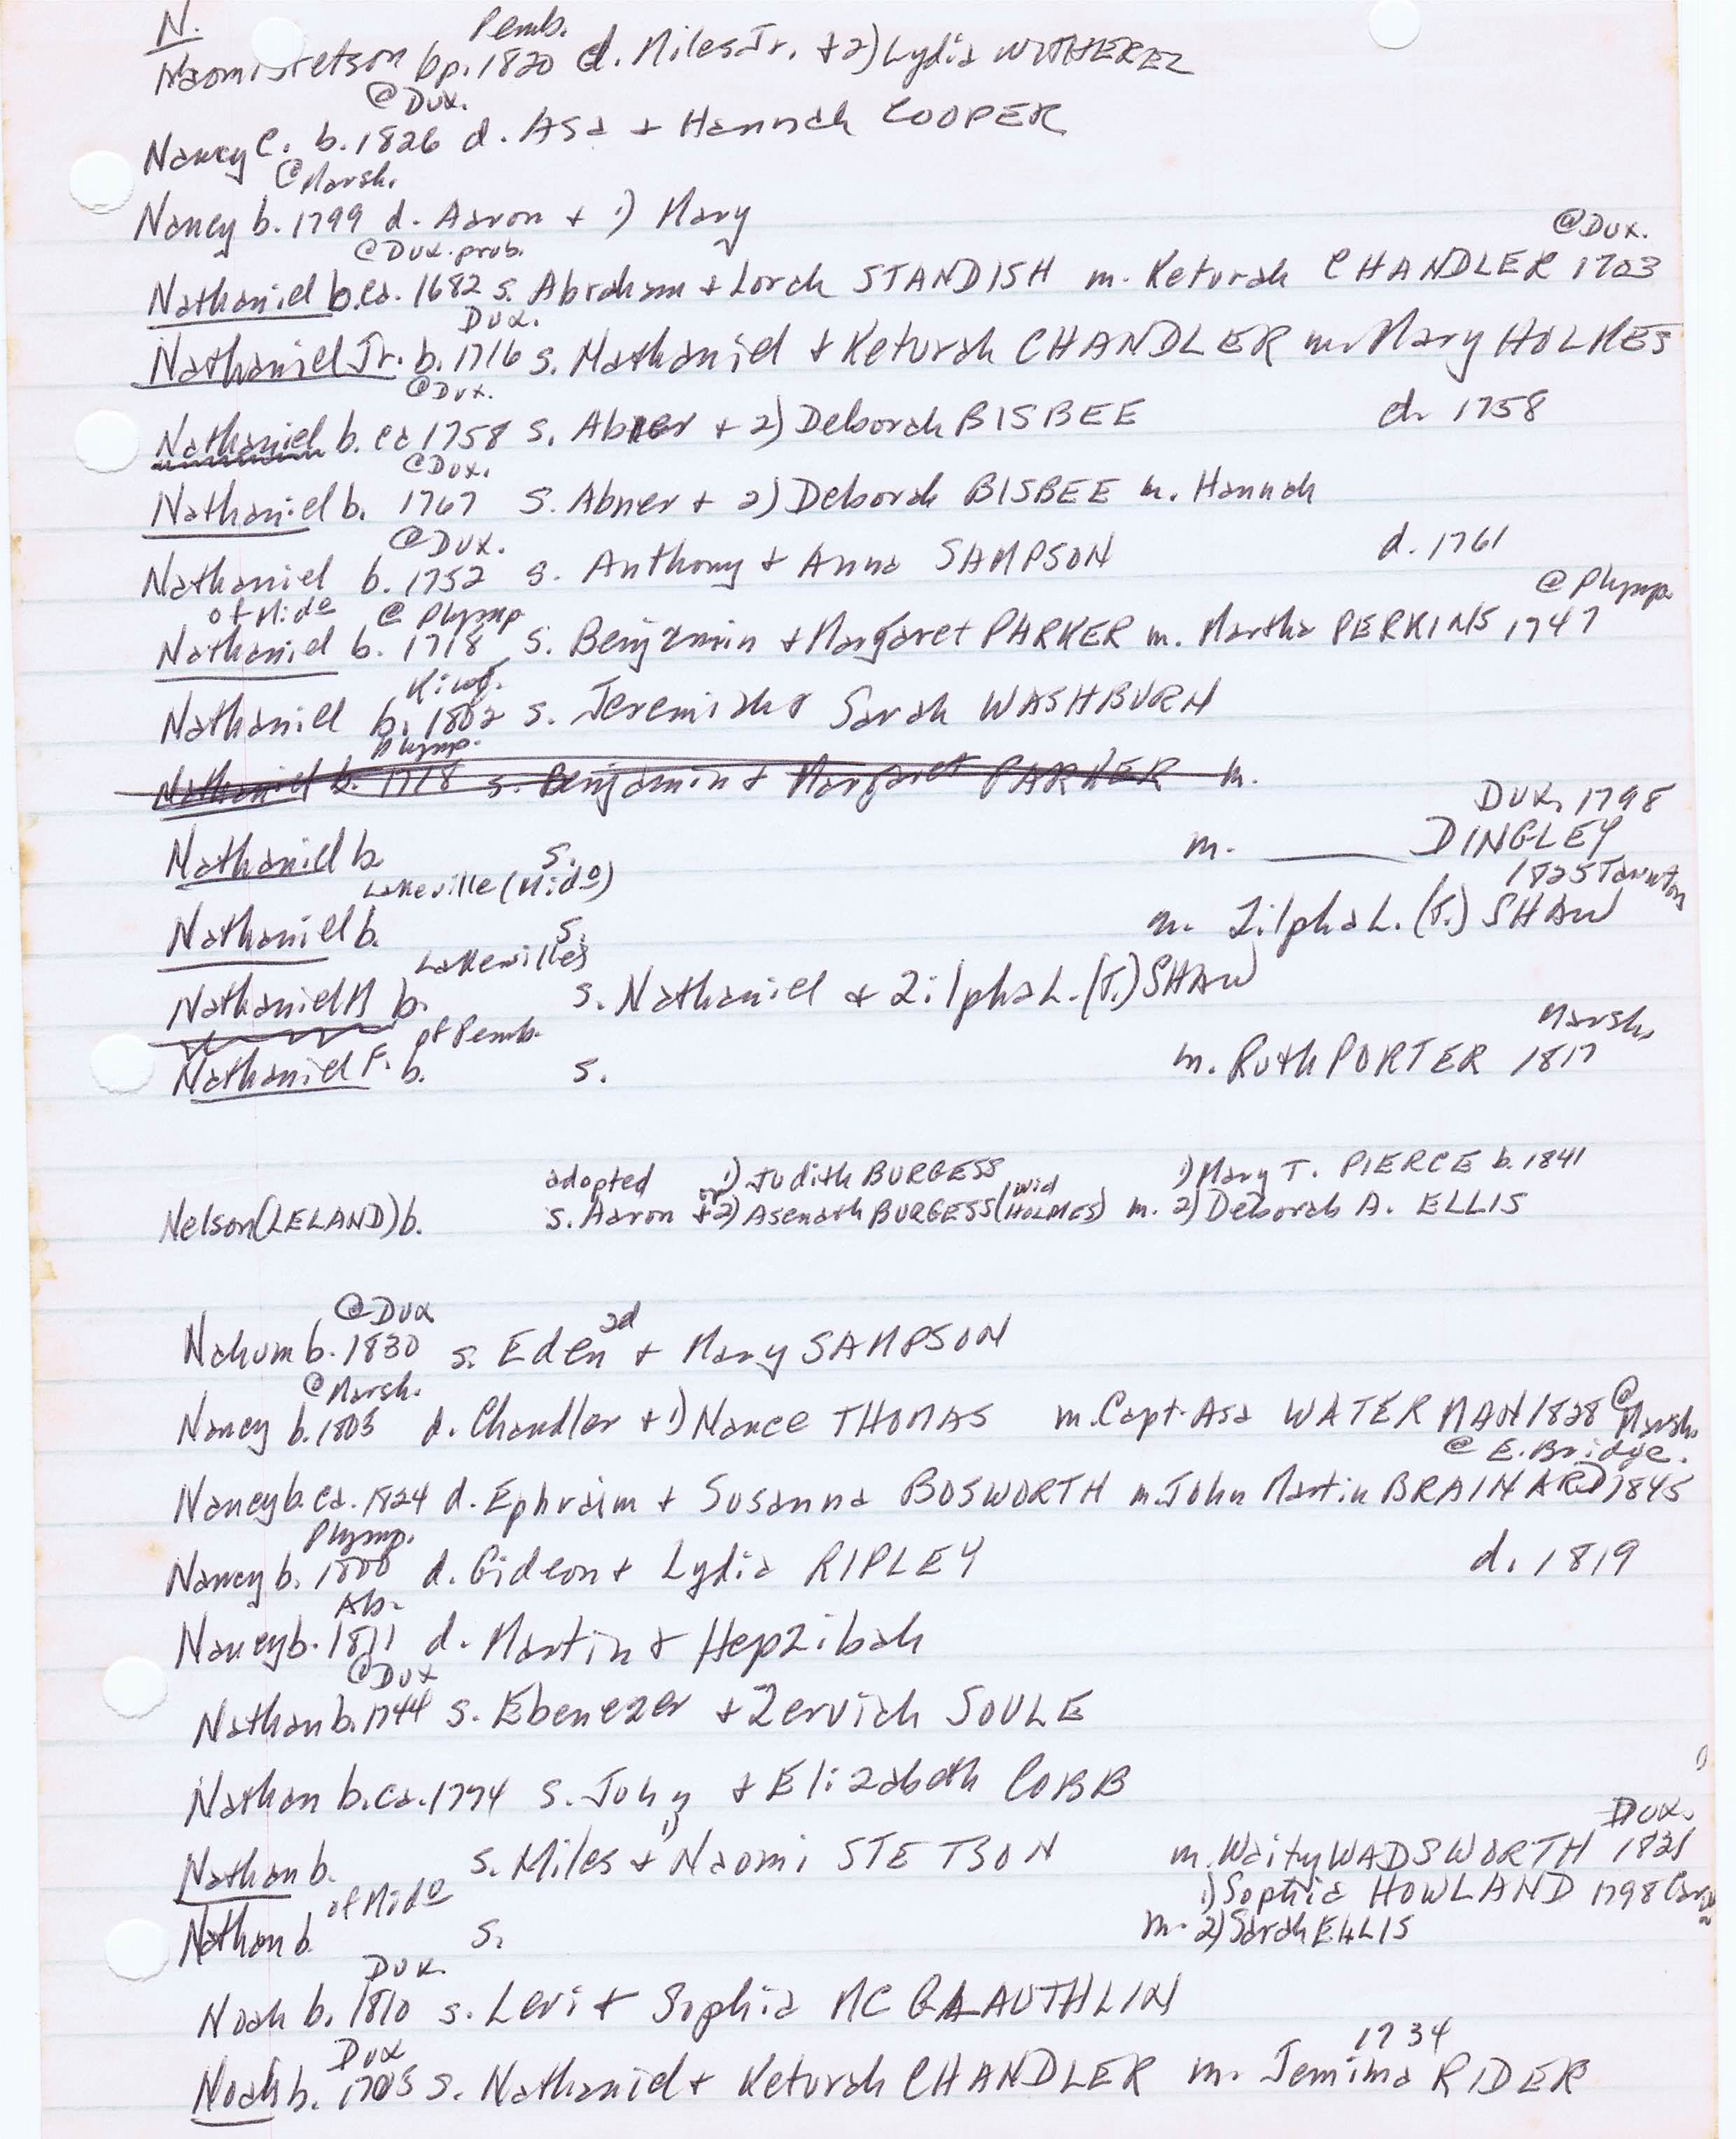 N.
Pemb.
Naomi Stetson bp. 1820 d. Miles Jr. + 2) Lydia WITHEREL
@Dux.
Nancy C. b. 1826 d. Asa + Hannah COOPER
@Marsh.
Nancy b. 1799 d. Aaron + 1) Mary
@Dux. prob. @Dux.
Nathaniel b.ca. 1682 s. Abraham + Lorah STANDISH m. Keturah CHANDLER 1703
Dux.
Nathaniel Jr. b. 1716 s. Nathaniel + Keturah CHANDLER m. Mary HOLMES
@Dux.
Nathaniel b. ca 1758 s. Abner + 2) Deborah BISBEE d. 1758
@Dux.
Nathaniel b. 1767 s. Abner + 2) Deborah BISBEE m. Hannah
@Dux.
Nathaniel b. 1752 s. Anthony + Anna SAMPSON d. 1761
of Mido @ Plymp @ Plymp.
Nathaniel b. 1718 s. Benjamin + Margaret PARKER m. Martha PERKINS 1747
King.
Nathaniel b. 1802 s. Jeremiah + Sarah WASHBURN
Plymp.
Nathaniel b. 1718 s. Benjamin + Margaret PARKER m.
Dux. 1798
Nathaniel b. s. m. ____ DINGLEY
Lakeville (Mido) 1825 Taunton
Nathaniel b. s. m. Zilpha L. (T.) SHAW
Lakeville
Nathaniel M b. s. Nathaniel + Zilpha L. (T.) SHAW
of Pemb. Marsh.
Nathaniel F. b. s. m. Ruth PORTER 1817
adopted 1) Judith BURGESS 1) Mary T. PIERCE b. 1841
or wid
Nelson (LELAND) b. s. Aaron + 2) Asenath BURGESS (HOLMES) m. 2) Deborah A. ELLIS
@Dux
Nahum b. 1830 s. Eden 2d + Mary SAMPSON
@Marsh. @
Nancy b. 1803 d. Chandler + 1) Nance THOMAS m. Capt. Asa WATERMAN 1828 Marsh.
@ E. Bridge.
Nancy b. ca. 1824 d. Ephraim + Susanna BOSWORTH m. John Martin BRAINARD 1845
Plymp.
Nancy b. 1800 d. Gideon + Lydia RIPLEY d. 1819
Ab.
Nancy b. 1811 d. Martin + Hepzibah
@Dux
Nathan b. 1744 s. Ebenezer + Zerviah SOULE
Nathan b. ca. 1774 s. John + Elizabeth COBB
1) Dux.
Nathan b. s. Miles + Naomi STETSON m. Waity WADSWORTH 1821
of Mido 1) Sophia HOWLAND 1798
Nathan b. s. m. 2) Sarah ELLIS
Dux.
Noah b. 1810 s. Levi + Sophia MC GLAUTHLIN
Dux 1734
Noah b. 1705 s. Nathaniel + Keturah CHANDLER m. Jemima RIDER